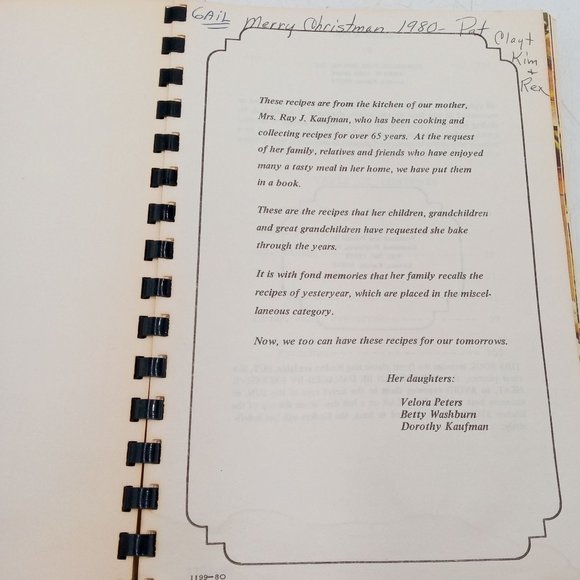 GAiL Merry Christmas 1980- Pat
Clayt
Kim
+
Rex
These recipes are from the kitchen of our mother,
Mrs. Ray J. Kaufman, who has been cooking and
collecting recipes for over 65 years. At the request
of her family, relatives and friends who have enjoyed
many a tasty meal in her home, we have put them
in a book.
These are the recipes that her children, grandchildren
and great grandchildren have requested she bake
through the years.
It is with fond memories that her family recalls the
recipes of yesteryear, which are placed in the miscel-
laneous category.
Now, we too can have these recipes for our tomorrows.
Her daughters:
Velora Peters
Betty Washburn
Dorothy Kaufman
1199-80